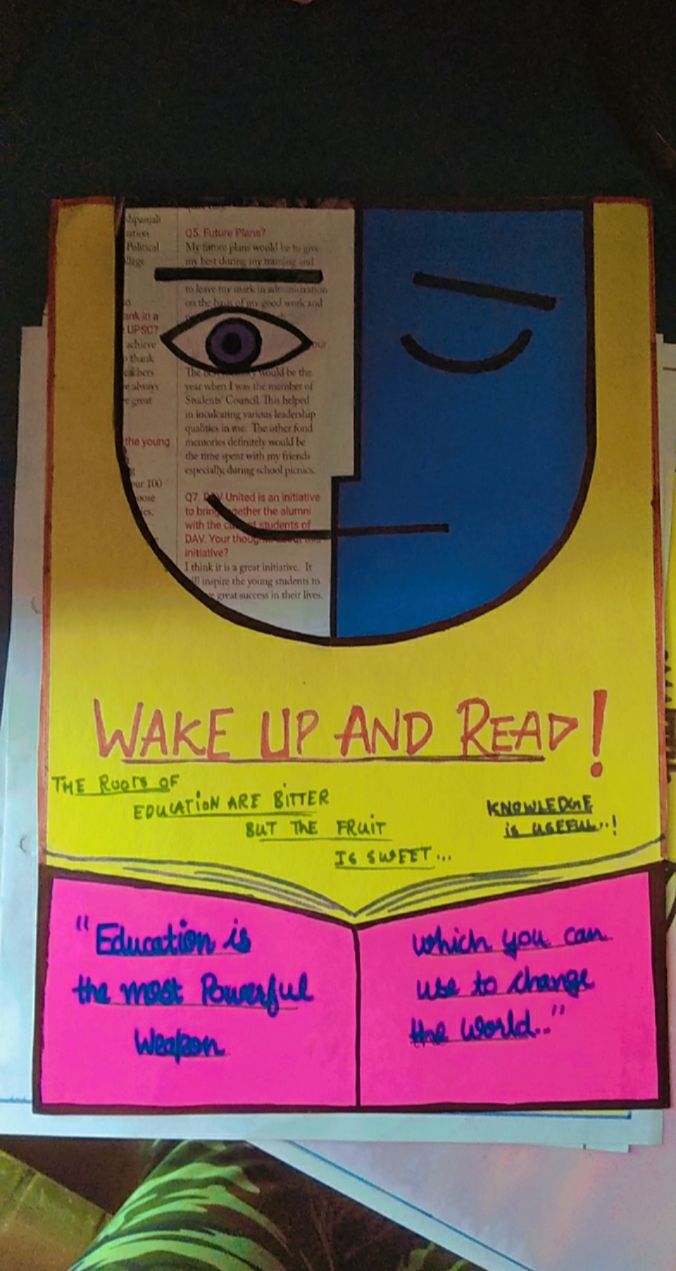 shpanjali
Political
ank in a
UPSC?
achieve
thank
always
great
the young
our 100
Q5. Future Plans?
My future plans would be to give
my best during my training and
to leave my mark in administration
on the basis of my good work and
would be the
year when I was the member of
Students' Council. This helped
in inculcating various leadership
qualities in me. The other fond
memories definitely would be
the time spent with my friends
especially, during school picnics.
Q7. DAV United is an initiative
to bring together the alumni
with the students of
DAV. Your this
initiative?
I think it is a great initiative. It
inspire the young students to
great success in their lives.
WAKE UP AND READ!
THE ROOTS OF
EDUCATION ARE BITTER
BUT THE FRUIT
IS SWEET...
KNOWLEDGE
is USEFUL..!
"Education is
the most Powerful
Weapon
which you can
use to change
the World.."